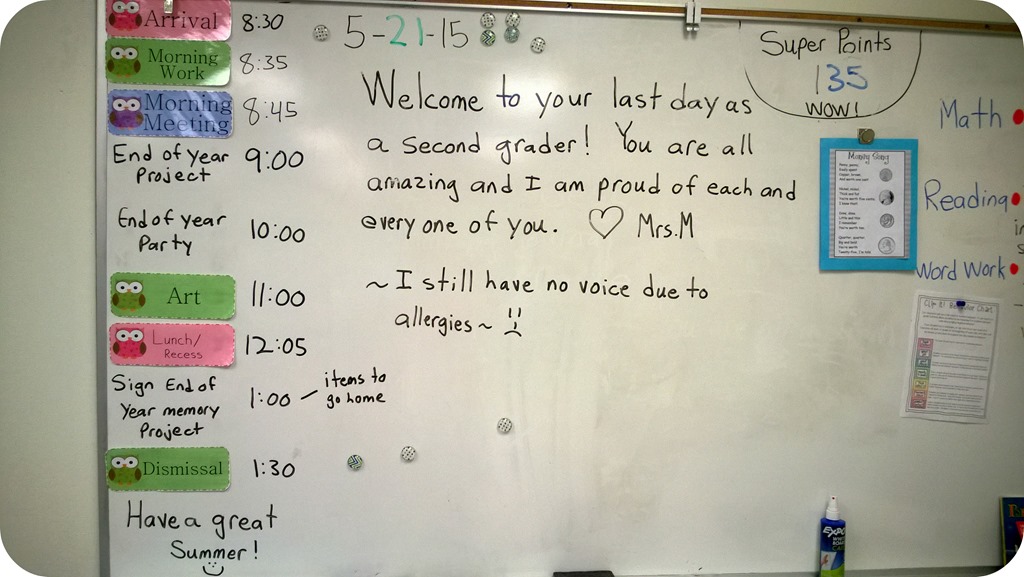 Arrival 8:30
Morning Work 8:35
Morning Meeting 8:45
End of year Project 9:00
End of year Party 10:00
Art 11:00
Lunch/Recess 12:05
Sign End of Year memory Project 1:00 items to go home
Dismissal 1:30
Have a great
Summer!
5-21-15
Welcome to your last day as
a second grader! You are all
amazing and I am proud of each and
every one of you. ♡ Mrs.M
~ I still have no voice due to
allergies ~
Super Points
135
WOW!
Money Song
Math
Reading
Word Work
EXPO